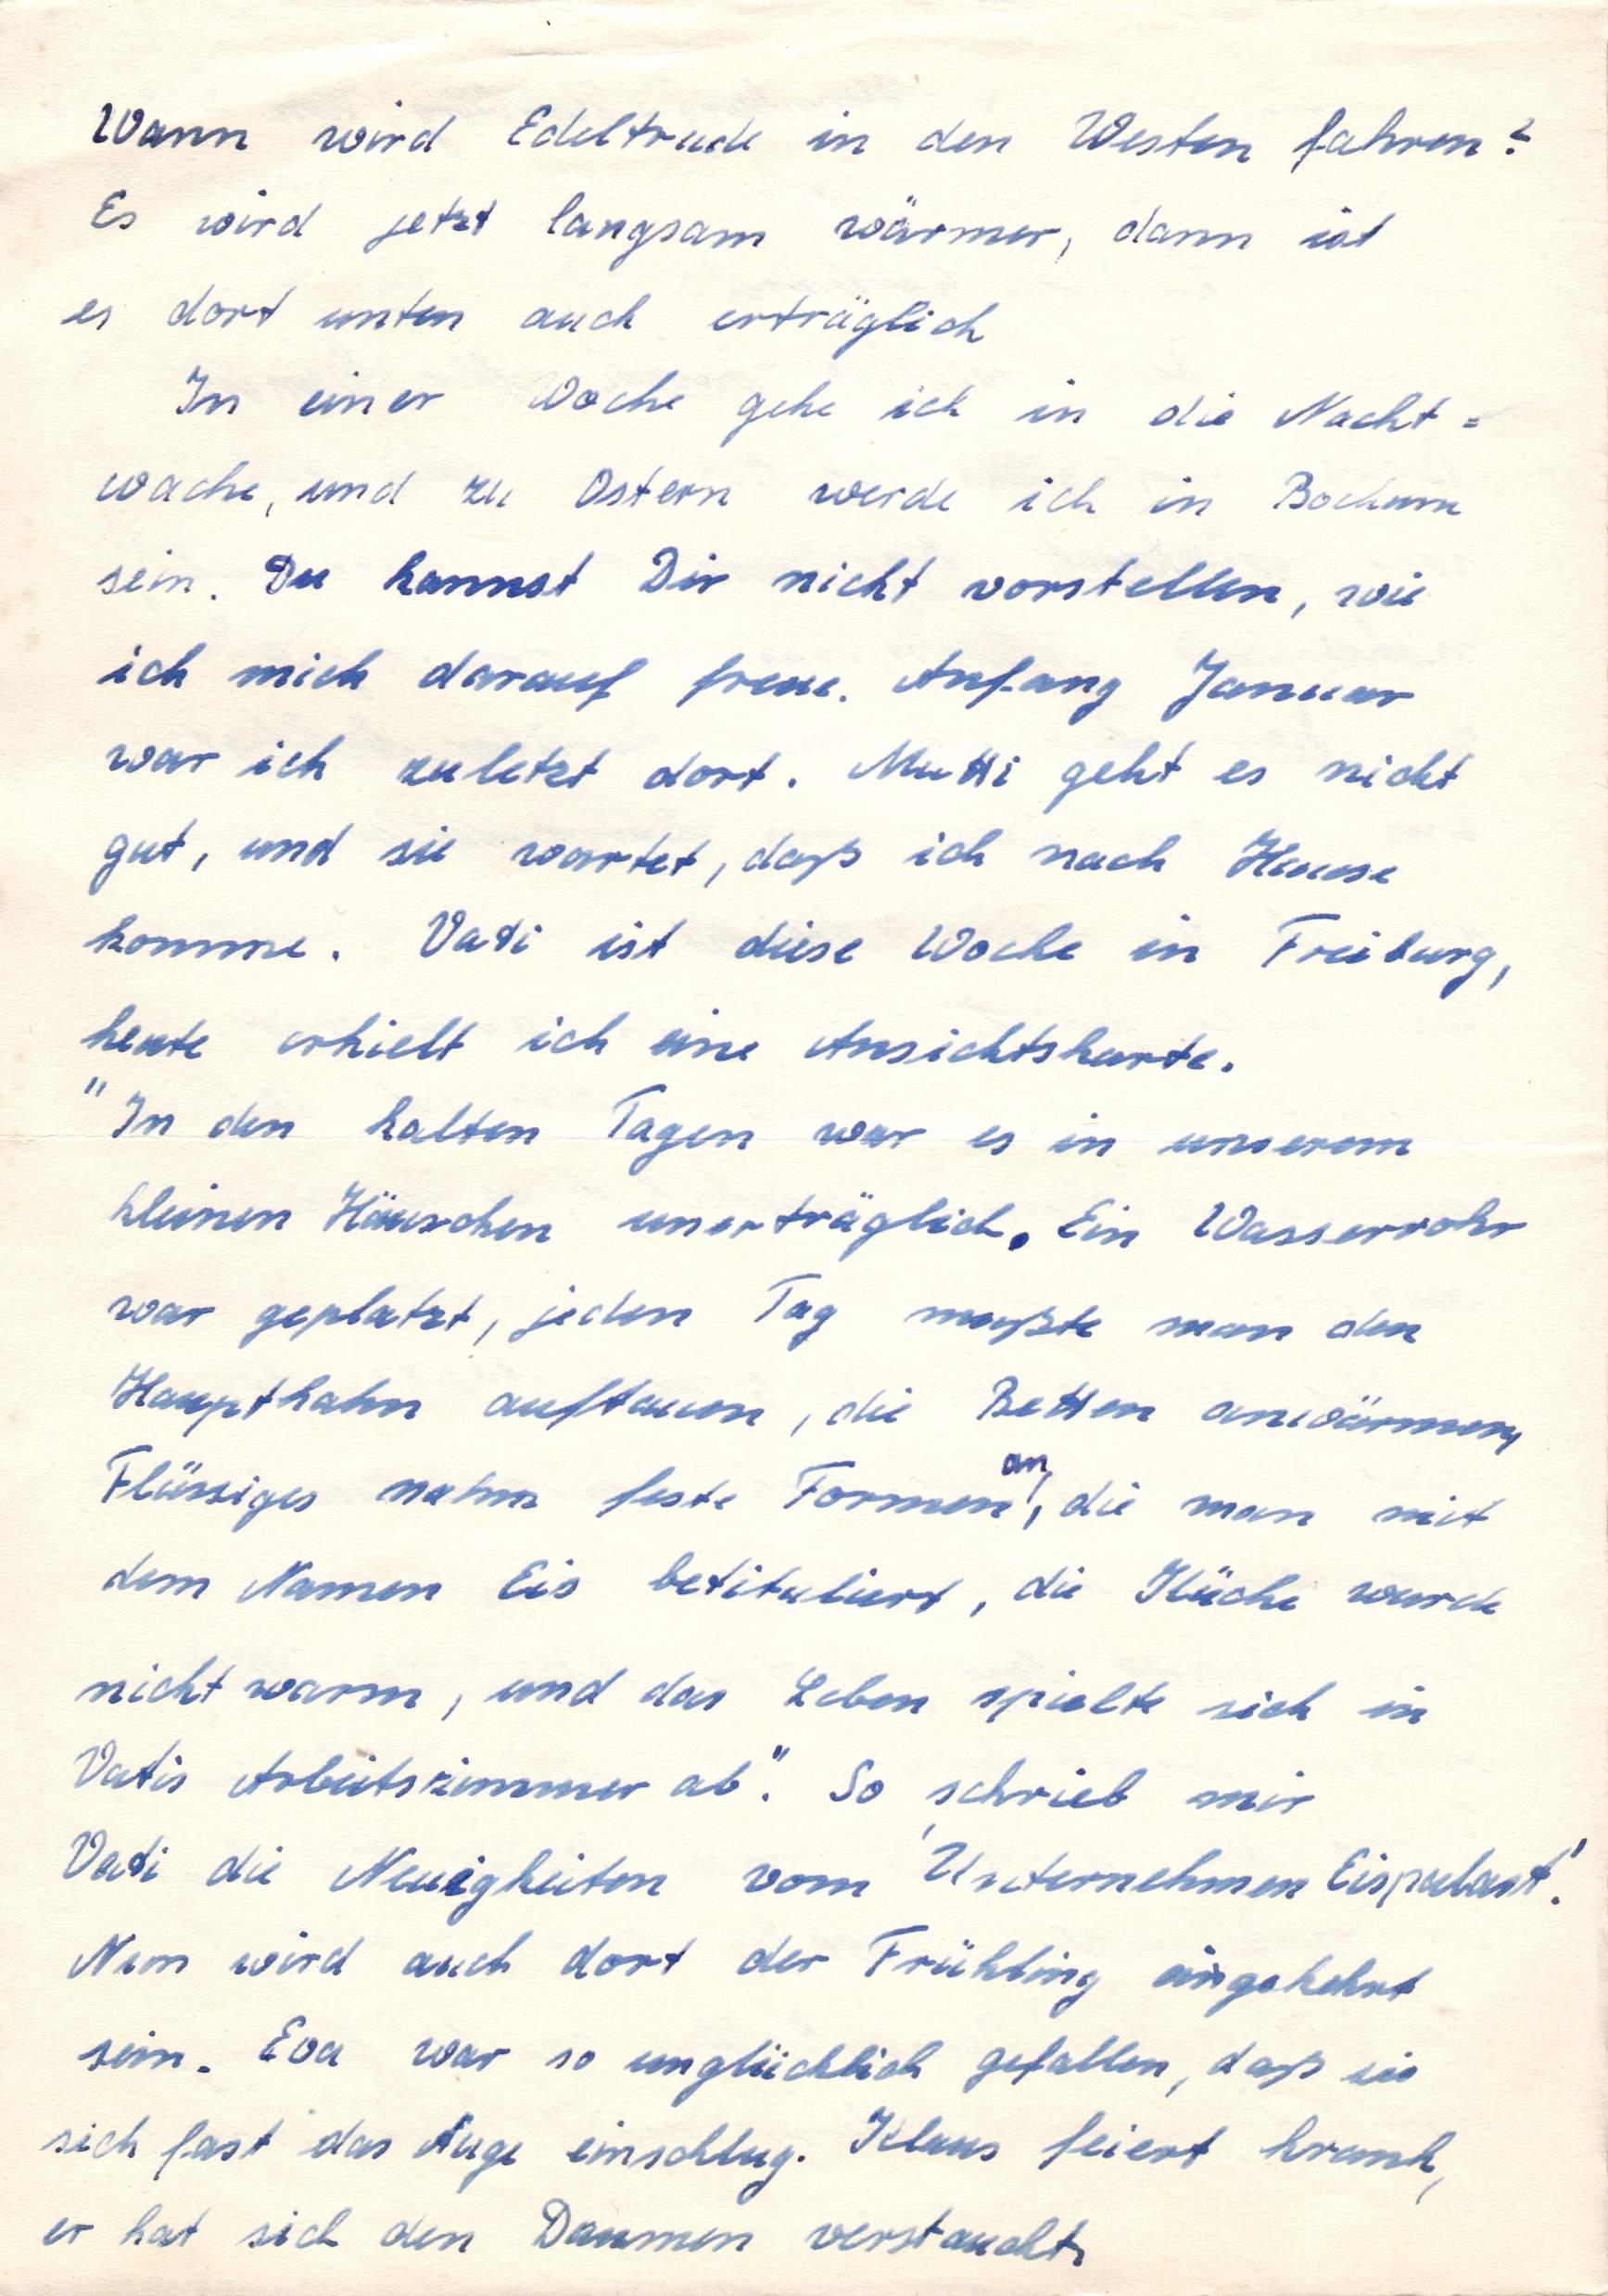 Wann wird Edeltrude in den Westen fahren?
Es wird jetzt langsam wärmer, dann ist
es dort unten auch erträglich
In einer Woche gehe ich in die Nacht=
wache, und zu Ostern werde ich in Bochum
sein. Du kannst Dir nicht vorstellen, wie
ich mich darauf freue. Anfang Januar
war ich zuletzt dort. Mutti geht es nicht
gut, und sie wartet, daß ich nach Hause
komme. Vati ist diese Woche in Freiburg,
heute erhielt ich eine Ansichtskarte.
"In den kalten Tagen war es in unserem
kleinen Häuschen unerträglich. Ein Wasserrohr
war geplatzt, jeden Tag mußte man den
Haupthahn auftauen, die Betten anwärmen,
Flüssiges nahm feste Formen an, die man mit
dem Namen Eis betituliert, die Küche wurde
nicht warm, und das Leben spielte sich in
Vatis Arbeitszimmer ab". So schrieb mir
Vati die Neuigkeiten vom 'Unternehmen Eispalast'.
Nun wird auch dort der Frühling eingekehrt
sein. Eva war so unglücklich gefallen, daß sie
sich fast das Auge einschlug. Klaus feiert krank,
er hat sich den Daumen verstaucht.